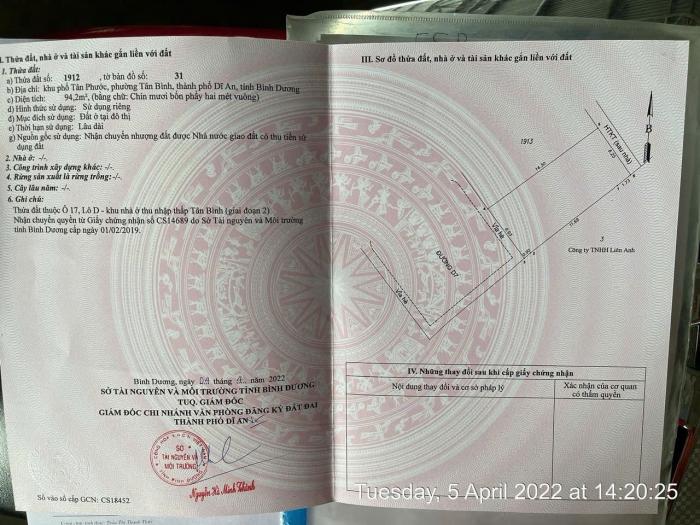 I. Thửa đất, nhà ở và tài sản khác gắn liền với đất
1. Thửa đất:
a) Thửa đất số: 1912 , tờ bản đồ số: 31
b) Địa chỉ: khu phố Tân Phước, phường Tân Bình, thành phố Dĩ An, tỉnh Bình Dương
c) Diện tích: 94,2m², (bằng chữ: Chín mươi bốn phẩy hai mét vuông)
d) Hình thức sử dụng: Sử dụng riêng
đ) Mục đích sử dụng: Đất ở tại đô thị
e) Thời hạn sử dụng: Lâu dài
g) Nguồn gốc sử dụng: Nhận chuyển nhượng đất được Nhà nước giao đất có thu tiền sử
dụng đất
2. Nhà ở: -/-
3. Công trình xây dựng khác: -/-
4. Rừng sản xuất là rừng trồng: -/-
5. Cây lâu năm: -/-
6. Ghi chú:
Thửa đất thuộc Ô 17, Lô D - khu nhà ở thu nhập thấp Tân Bình (giai đoạn 2)
Nhận chuyển quyền từ Giấy chứng nhận số CS14689 do Sở Tài nguyên và Môi trường
tỉnh Bình Dương cấp ngày 01/02/2019.
Bình Dương, ngày tháng năm 2022
SỞ TÀI NGUYÊN VÀ MÔI TRƯỜNG TỈNH BÌNH DƯƠNG
TUQ. GIÁM ĐỐC
GIÁM ĐỐC CHI NHÁNH VĂN PHÒNG ĐĂNG KÝ ĐẤT ĐAI
THÀNH PHỐ DĨ AN
SỞ
TÀI NGUYÊN VÀ
MÔI TRƯỜNG
Nguyễn Hà Minh Thành
Số vào sổ cấp GCN: CS18452
III. Sơ đồ thửa đất, nhà ở và tài sản khác gắn liền với đất
B
HTKT (sau nhà)
1913
Vỉa hè
ĐƯỜNG D7
Vỉa hè
3
Công ty TNHH Liên Anh
IV. Những thay đổi sau khi cấp giấy chứng nhận
Nội dung thay đổi và cơ sở pháp lý
Xác nhận của cơ quan
có thẩm quyền
Tuesday, 5 April 2022 at 14:20:25